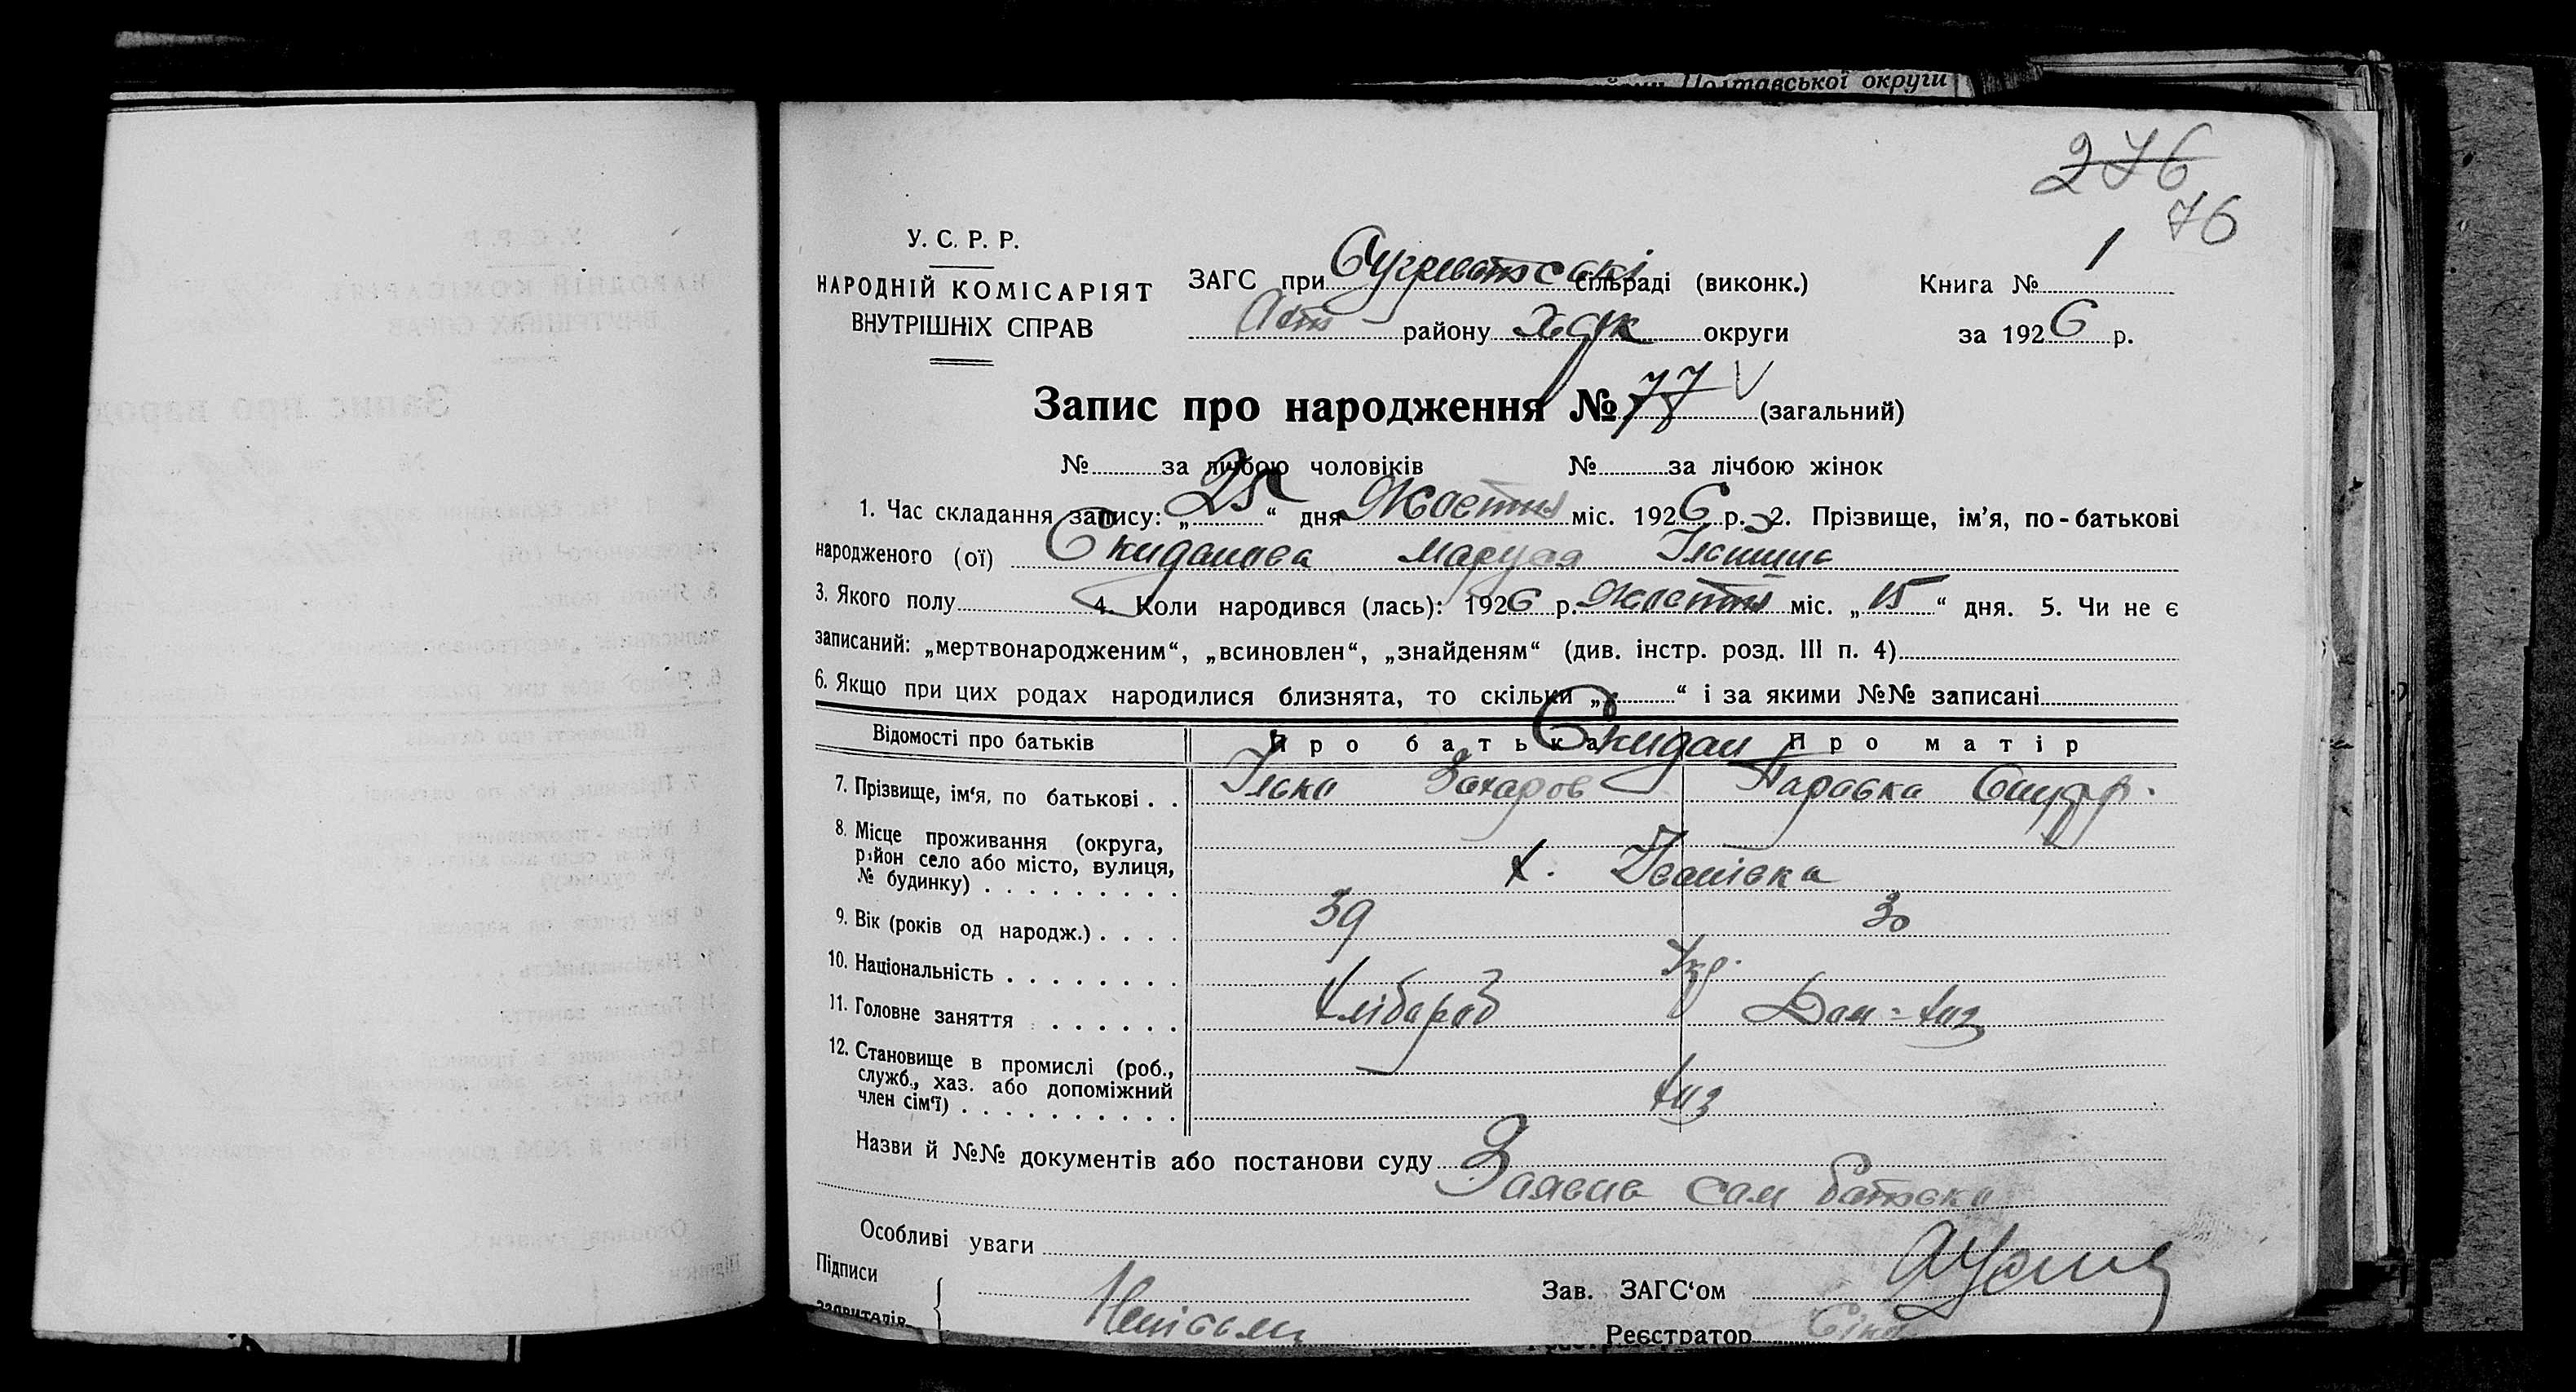 Полтавської округи
276
76
У. С. Р. Р.
НАРОДНІЙ КОМІСАРІЯТ
ВНУТРІШНІХ СПРАВ
ЗАГС при сільраді (виконк.)
району Харк округи
Книга № 1
за 1926 р.
Запис про народження № 77 (загальний)
№ за лічбою чоловіків № за лічбою жінок
1. Час складання запису: „25“ дня Жовтня міс. 1926 р. 2. Прізвище, ім'я, по-батькові
народженого (ої) Скиданова Маруся Ілінішна
3. Якого полу 4. Коли народився (лась): 1926 р. Жовтня міс. „15“ дня. 5. Чи не є
записаний: „мертвонародженим“, „всиновлен“, „знайденям“ (див. інстр. розд. III п. 4)
6. Якщо при цих родах народилися близнята, то скільки „ “ і за якими №№ записані
Відомості про батьків Про батька Про матір
Скидан
7. Прізвище, ім'я, по батькові . . Ілько Захаров Параска Онуфр.
8. Місце проживання (округа,
район село або місто, вулиця,
№ будинку) . . . . . . . . . х. Іванівка
9. Вік (років од народж.) . . . . 39 30
10. Національність . . . . . . . . Укр.
11. Головне заняття . . . . . . . Хлібороб Дом=хаз
12. Становище в промислі (роб.,
служб., хаз. або допоміжний
член сім'ї) . . . . . . . . . . хаз
Назви й №№ документів або постанови суду
Заявив сам батько
Особливі уваги
Підписи
заявителів
Неписьм
Зав. ЗАГС'ом
Реєстратор